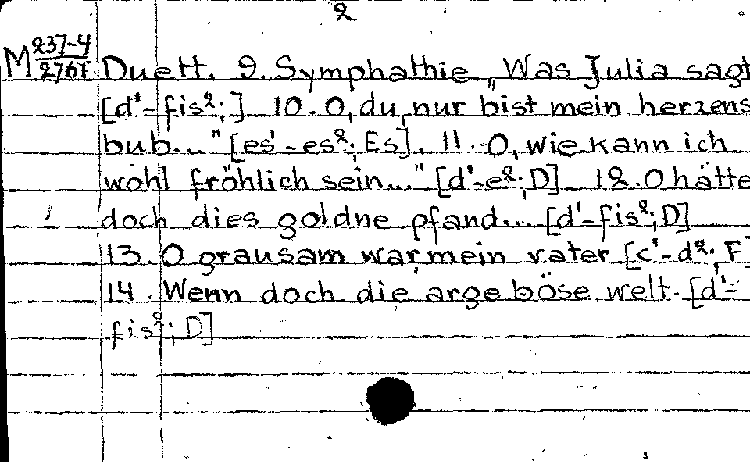 2
M 237-4
2767 Duett. 9. Symphathie „Was Julia sagt
[d¹-fis²; ] 10. O, du, nur bist mein herzens
bub..." [es¹-es²; Es]. 11. O, wie kann ich
wohl fröhlich sein..." [d¹-e²; D] 12. O hätte
doch dies goldne pfand... [d¹-fis²; D]
13. O grausam war mein vater [c¹-d²; F
14. Wenn doch die arge böse welt. [d¹-
fis²; D]